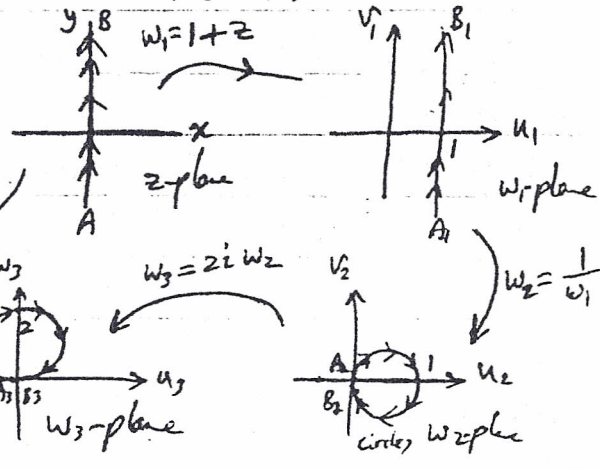 y B
w₁ = 1 + z
x
z-plane
A
V₁
B₁
u₁
1
w₁-plane
A₁
w₂ = 1/w₁
w₃ = 2i w₂
w₃
2
A₃ B₃
u₃
w₃-plane
V₂
A₂
B₂
1
u₂
circles w₂-plane